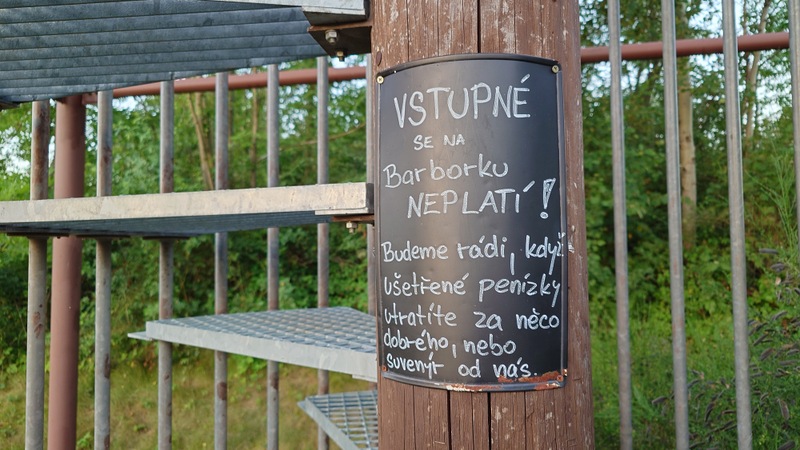 VSTUPNÉ
SE NA
Barborku
NEPLATÍ!
Budeme rádi, když
ušetřené penízky
utratíte za něco
dobrého, nebo
suvenýr od nás.